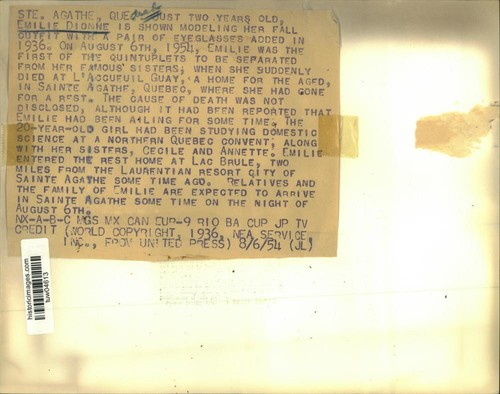 STE. AGATHE, QUE JUST TWO YEARS OLD,
EMILIE DIONNE IS SHOWN MODELING HER FALL
OUTFIT WITH A PAIR OF EYEGLASSES ADDED IN
1936. ON AUGUST 6TH, 1954, EMILIE WAS THE
FIRST OF THE QUINTUPLETS TO BE SEPARATED
FROM HER FAMOUS SISTERS, WHEN SHE SUDDENLY
DIED AT L'ACCUEUIL GUAY, A HOME FOR THE AGED,
IN SAINTE AGATHE, QUEBEC, WHERE SHE HAD GONE
FOR A REST. THE CAUSE OF DEATH WAS NOT
DISCLOSED, ALTHOUGH IT HAD BEEN REPORTED THAT
EMILIE HAD BEEN AILING FOR SOME TIME. THE
20-YEAR-OLD GIRL HAD BEEN STUDYING DOMESTIC
SCIENCE AT A NORTHERN QUEBEC CONVENT, ALONG
WITH HER SISTERS, CECILE AND ANNETTE. EMILIE
ENTERED THE REST HOME AT LAC BRULE, TWO
MILES FROM THE LAURENTIAN RESORT CITY OF
SAINTE AGATHE SOME TIME AGO. RELATIVES AND
THE FAMILY OF EMILIE ARE EXPECTED TO ARRIVE
IN SAINTE AGATHE SOME TIME ON THE NIGHT OF
AUGUST 6TH.
NX-A-B-C MGS MX CAN EUP-9 RIO BA CUP JP TV
CREDIT (WORLD COPYRIGHT, 1936, NEA SERVICE,
INC., FROM UNITED PRESS) 8/6/54 (JL)
historicimages.com
tuw04613